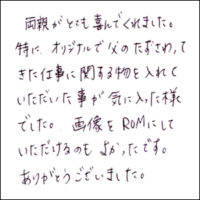 両親がとても喜んでくれました。
特に、オリジナルで父のたずさわって
きた仕事に関する物を入れて
いただいた事が気に入った様
でした。画像をROMにして
いただけるのもよかったです。
ありがとうございました。